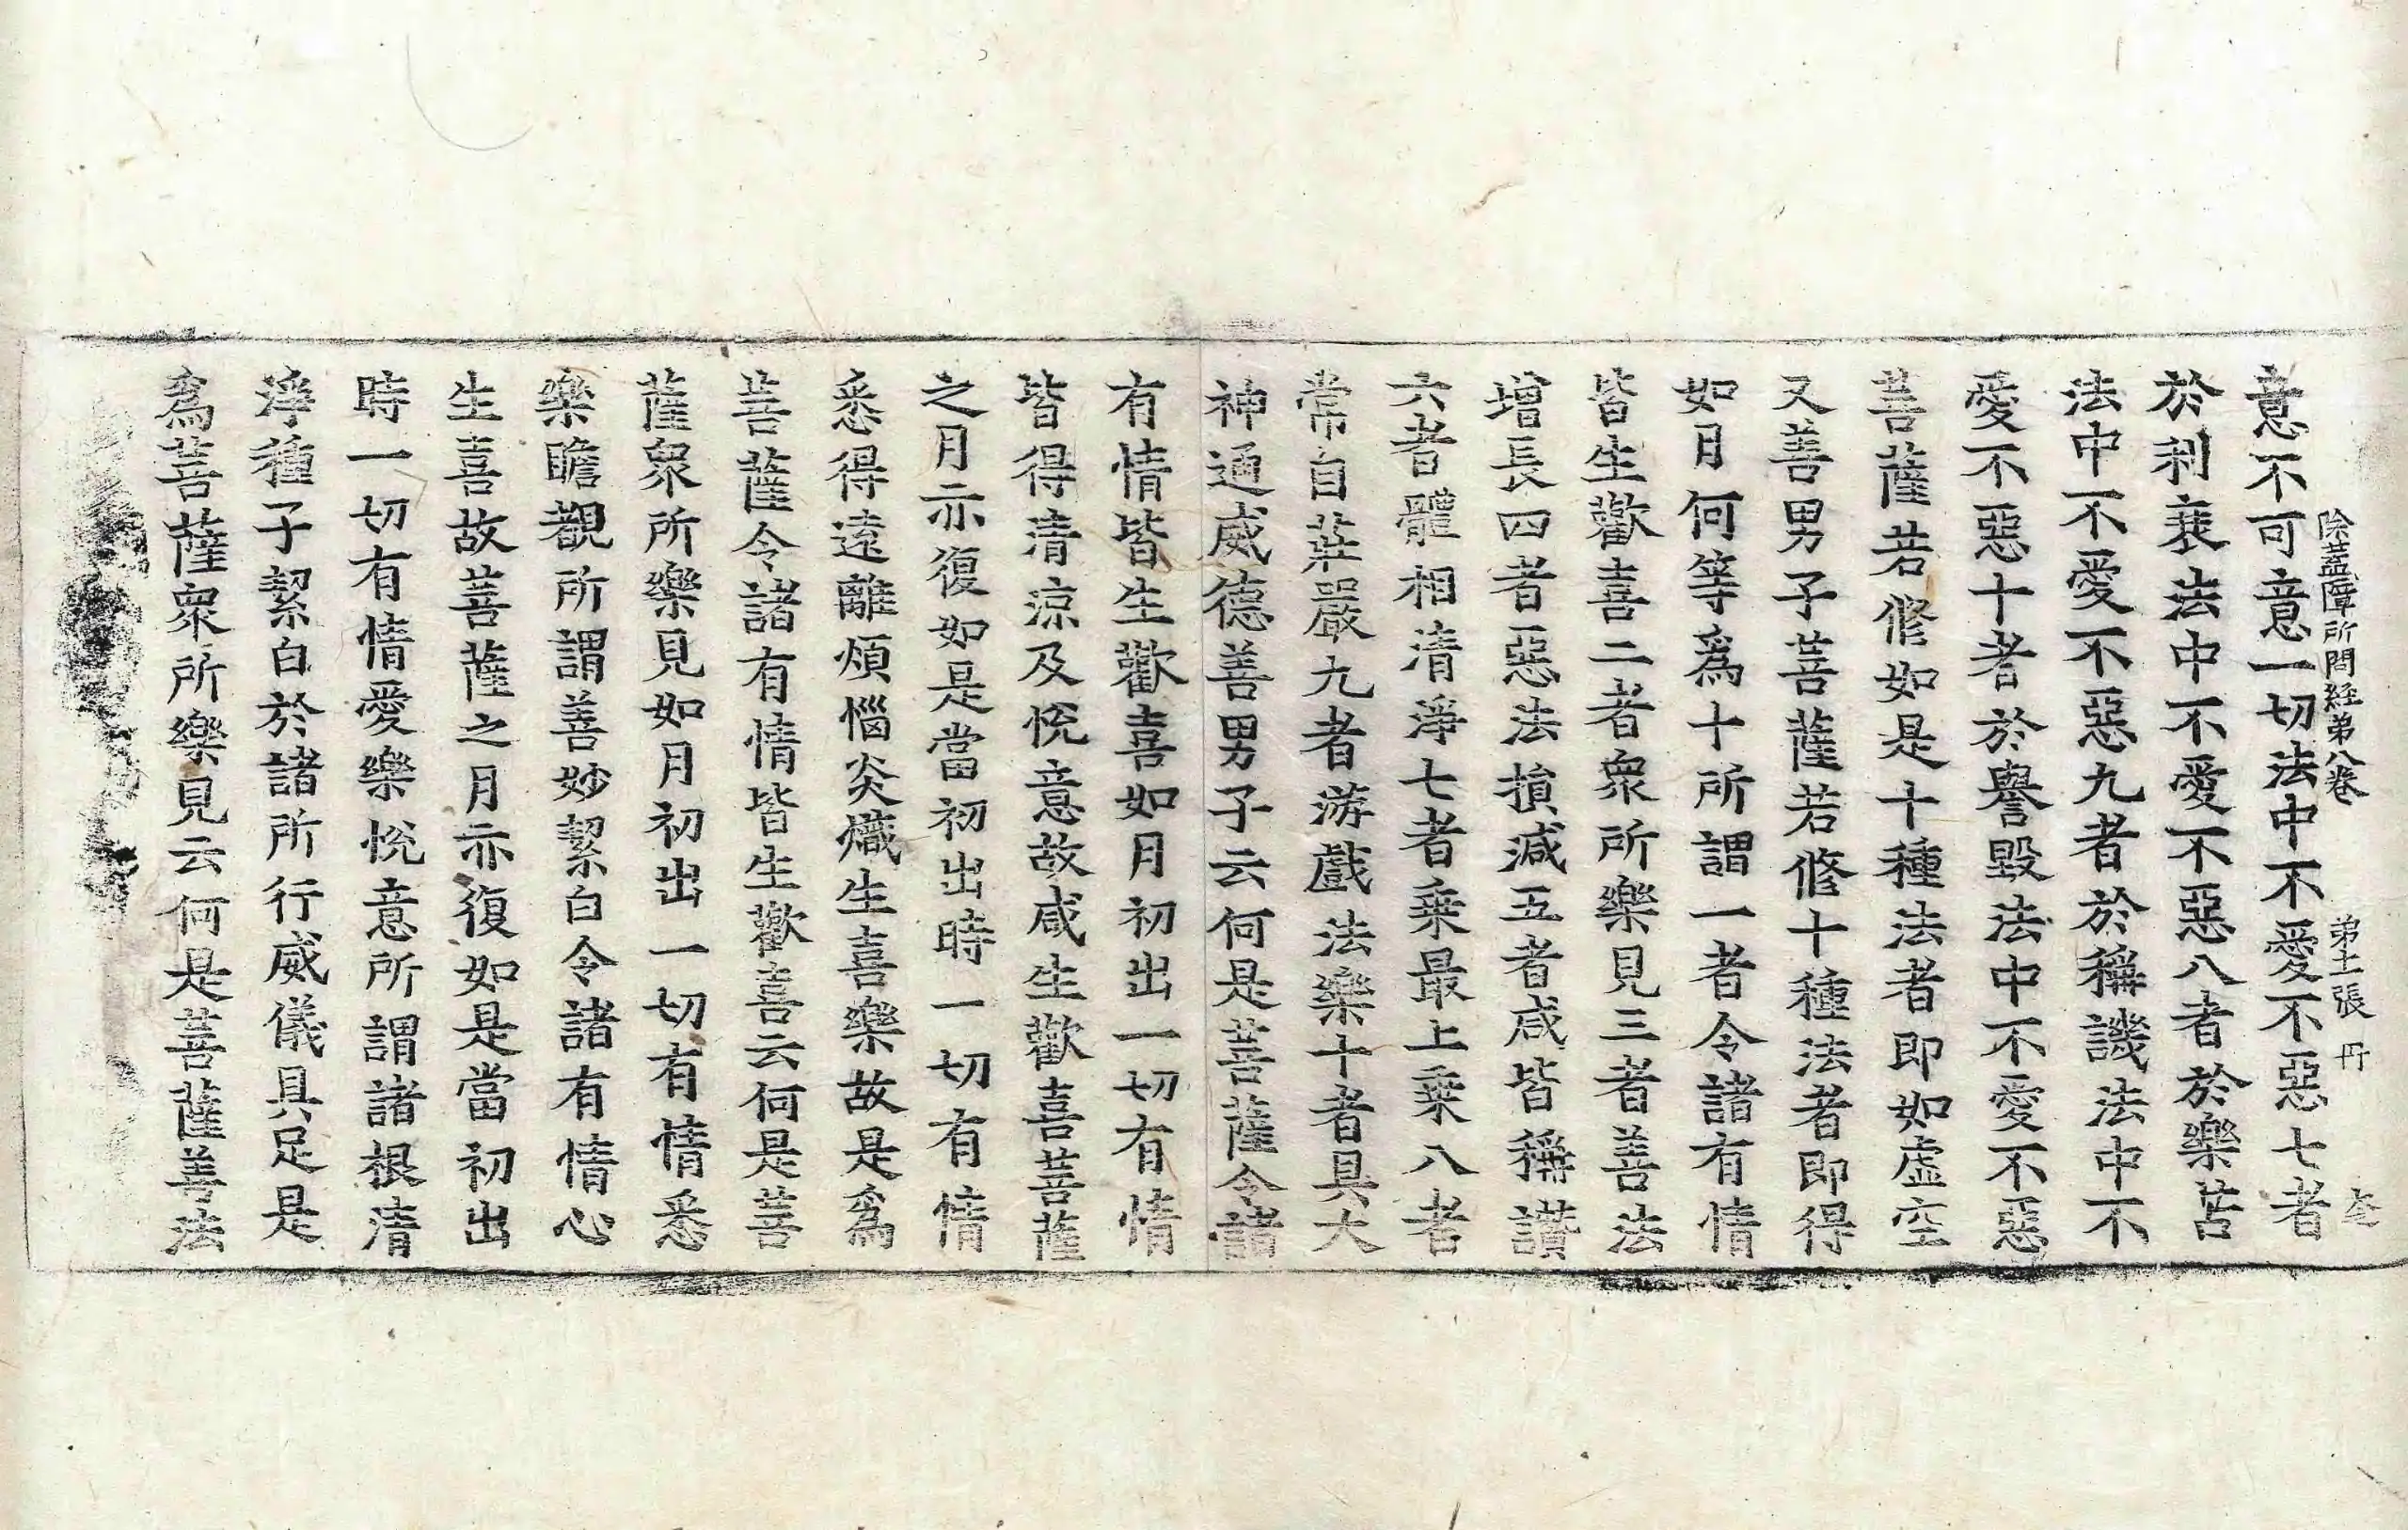 除蓋障所問經弟八卷 弟十二張 丹
意不可意一切法中不愛不惡七者
於利衰法中不愛不惡八者於樂苦
法中不愛不惡九者於稱譏法中不
愛不惡十者於譽毀法中不愛不惡
菩薩若修如是十種法者即如虛空
又善男子菩薩若修十種法者即得
如月何等爲十所謂一者令諸有情
皆生歡喜二者衆所樂見三者善法
增長四者惡法損減五者咸皆稱讚
六者體相清淨七者乗最上乗八者
常自莊嚴九者游戲法樂十者具大
神通威德善男子云何是菩薩令諸
有情皆生歡喜如月初出一切有情
皆得清涼及悅意故咸生歡喜菩薩
之月亦復如是當初出時一切有情
悉得遠離煩惱炎熾生喜樂故是爲
菩薩令諸有情皆生歡喜云何是菩
薩衆所樂見如月初出一切有情悉
樂瞻觀所謂善妙絜白令諸有情心
生喜故菩薩之月亦復如是當初出
時一切有情愛樂悅意所謂諸根清
淨種子絜白於諸所行威儀具足是
爲菩薩衆所樂見云何是菩薩善法